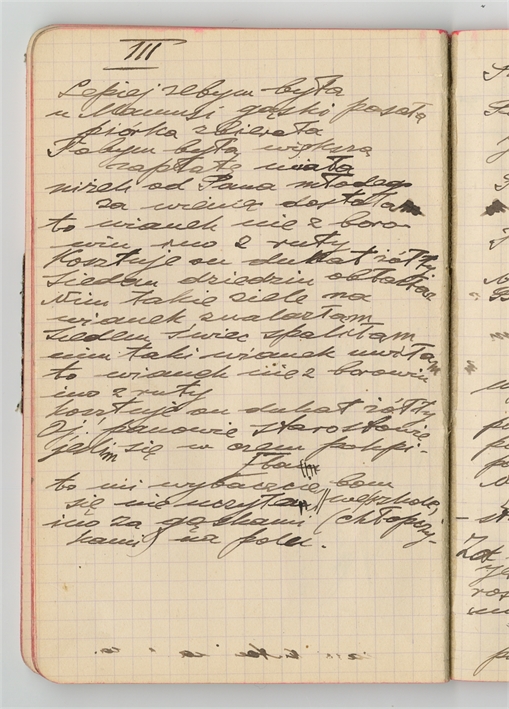 III
Lepiej żebym była
u Mamusi gąski pasała
piórka zbierała
Tobym była większą
zapłatę miała
niżeli od Pana młodego
za wieniec dostała
to wianek nie z boro-
win ino z ruty
Kosztuje on dukat żółty
Siedem dziedzin obleciałam
Nim takie ziele na
wianek znalazłam
Siedem świec spaliłam
nim taki wianek uwiłam
to wianek nie z borowin
ino z ruty
kosztuje on dukat żółty
Oj panowie starostowie
jelim się w czem pochybi-
łbam
to mi wybaczcie bom
się nie uczyłam w szkole,
ino za gąskami (chłopiczy-
kami) na polu.